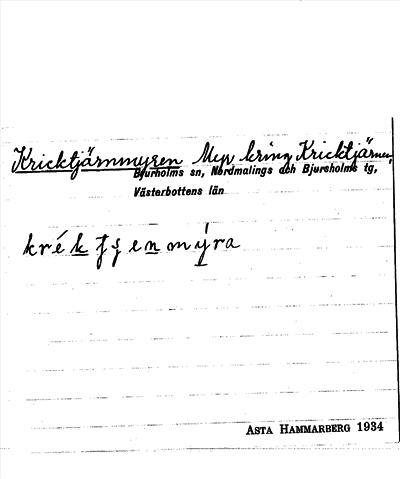 Kricktjärnmyren Myr kring Kricktjärnen,
Bjurholms sn, Nordmalings och Bjurholms tg,
Västerbottens län
krék
myra
ASTA HAMMARBERG 1934